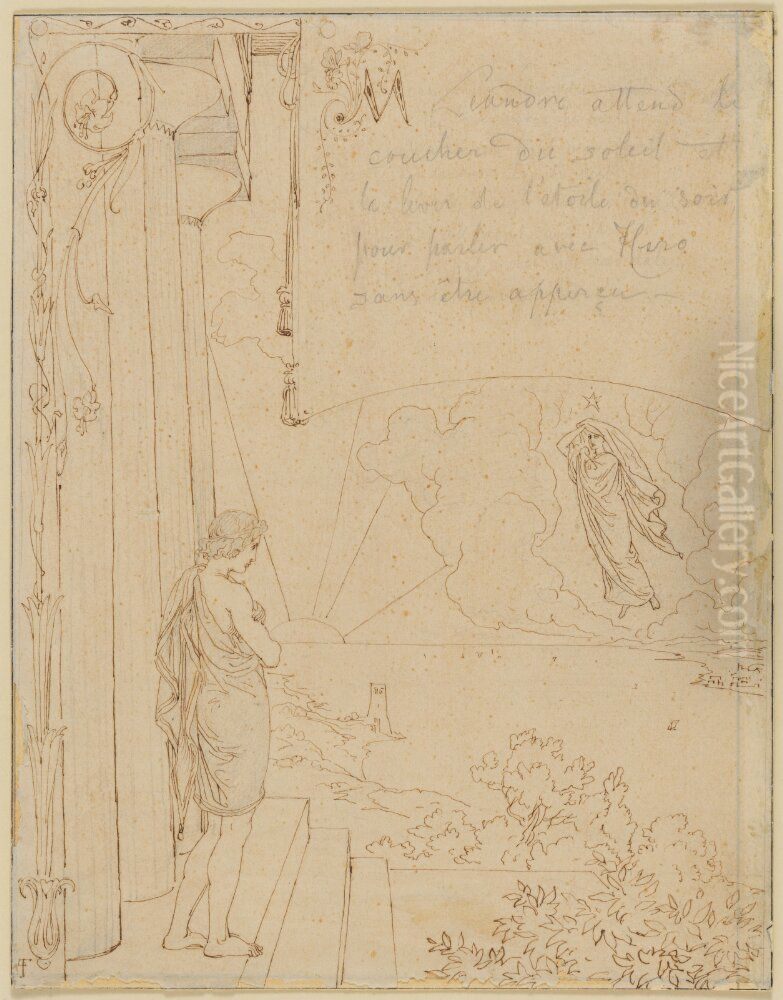 M
Léandre attend le
coucher du soleil et
le lever de l'étoile du soir
pour parler avec Héro
sans être apperçu —
NiceArtGallery.com